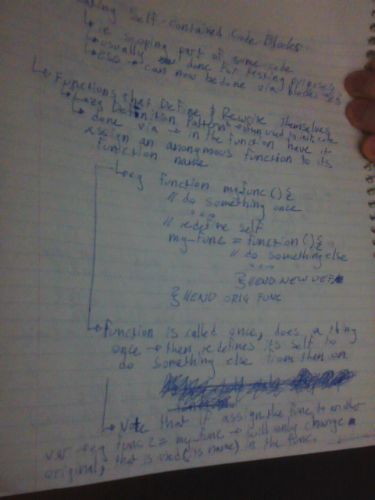 Self-Contained Code Blocks
ie scoping part of some code
usually done for testing purposes
ES6 → can now be done via blocks
Functions that Define & Rewrite themselves
Definition Pattern
done via → in the function have it
assign an anonymous function to its
function name
eg function myfunc () {
// do something once
// redefine self
my-func = function () {
// do something else
} // END NEW
} // END ORIG FUNC
Function is called once, does a thing
once → then redefines its self to
do something else from then on
Note that if assign the func to another
var eg func 2 = my func → will only change
original, that is used (is name) in the func.